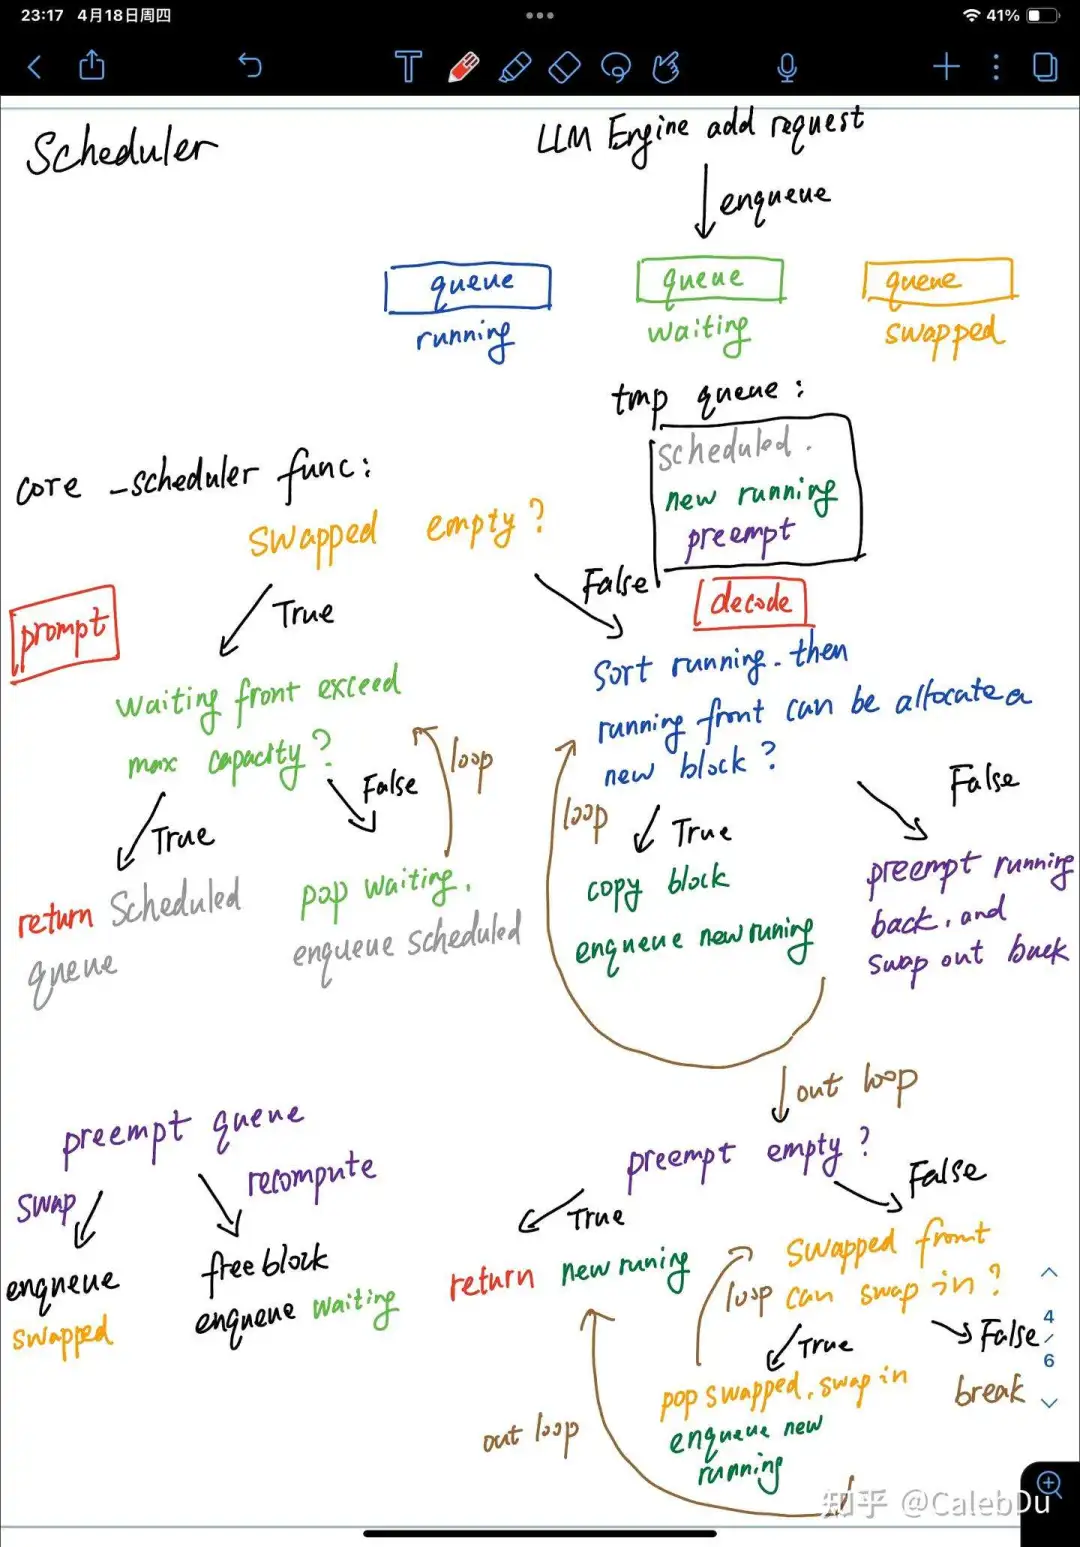 23:17 4月18日周四
41%
T
Scheduler
LLM Engine add request
enqueue
queue
running
queue
waiting
queue
swapped
tmp queue:
scheduled.
new running
preempt
core _scheduler func:
swapped empty?
True
False
prompt
decode
waiting front exceed
max capacity?
True
False
loop
return Scheduled
queue
pop waiting.
enqueue scheduled
Sort running. then
running front can be allocate a
new block?
loop
True
False
copy block
enqueue new runing
preempt running
back. and
swap out back
out loop
preempt empty?
True
False
return new runing
swapped front
can swap in?
loop
True
False
pop swapped. swap in
enqueue new
running
break
out loop
preempt queue
swap
recompute
enqueue
swapped
free block
enqueue waiting
4
/
6
知乎 @CalebDu